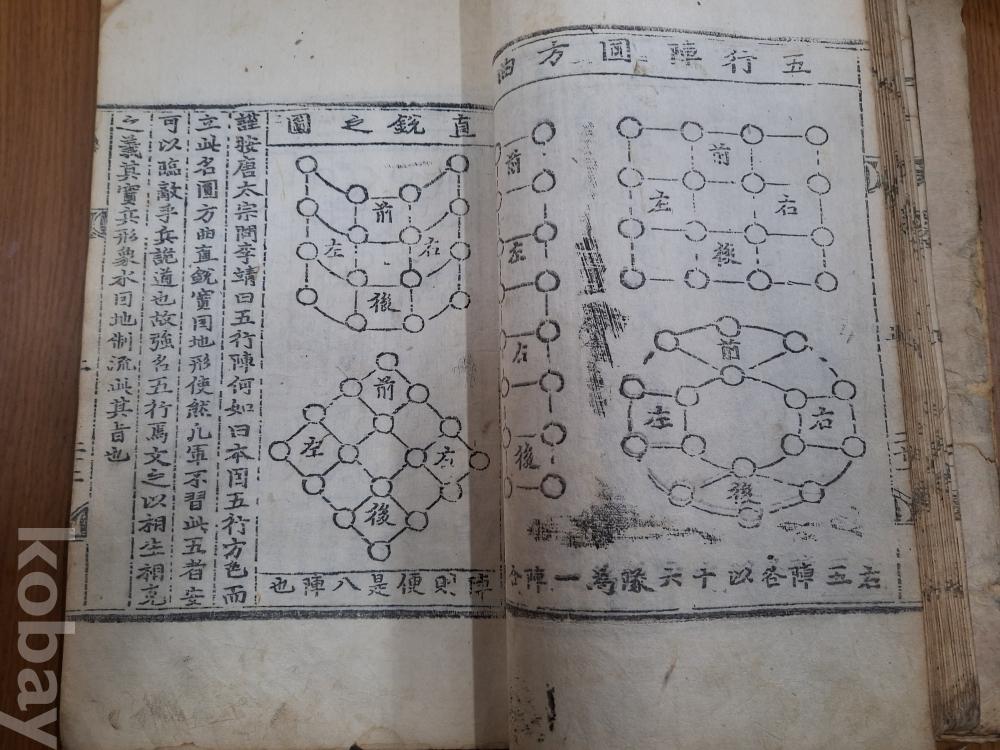 五行陣圓方曲
前
左
右
後
前
左
右
後
前
左
右
後
右五陣各以十六隊為一陣合
直銳之圖
前
左
右
後
前
左
右
後
陣則便是八陣也
謹按唐太宗問李靖曰五行陣何如曰本因五行方色而
立此名圓方曲直銳實因地形使然凡軍不習此五者安
可以臨敵乎兵詭道也故強名五行焉文之以相生相克
之義其實兵形象水因地制流此其旨也
kobay